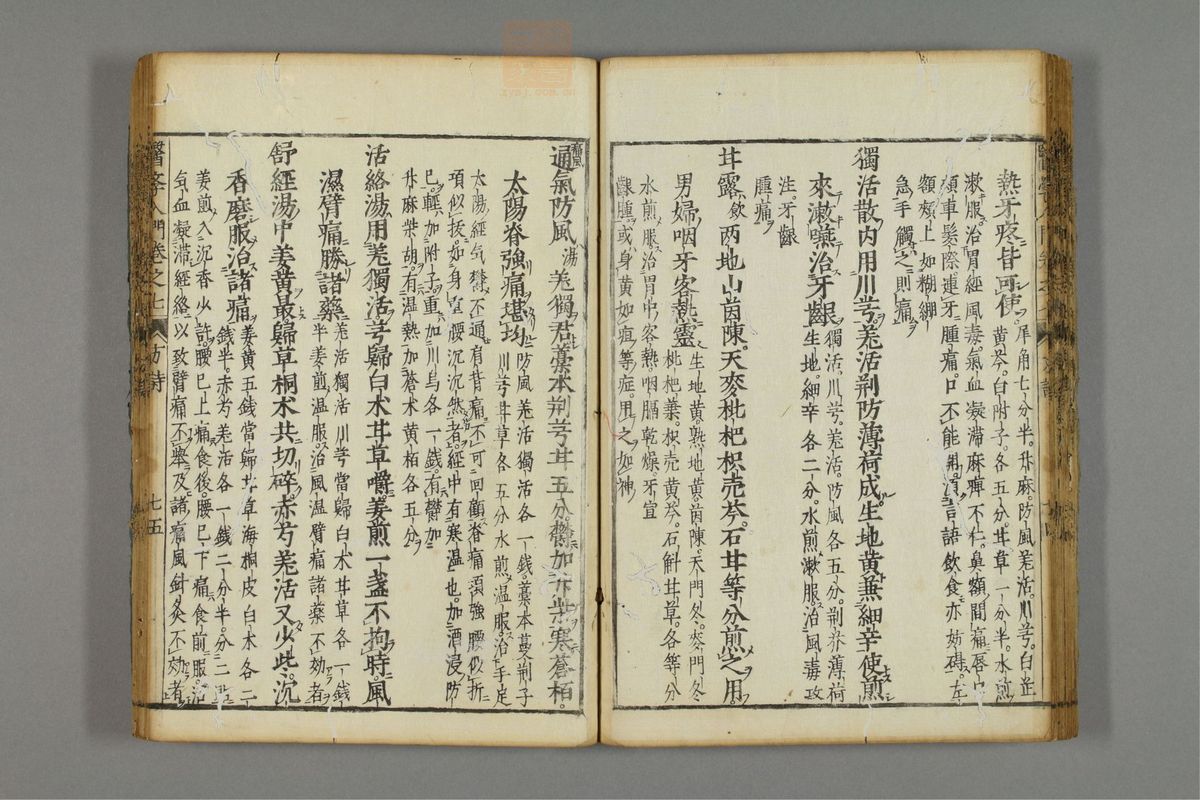 熱牙疼皆可使 犀角七分半。升麻。防風羌活。川芎。白芷
黃芩。白附子。各五分。甘草一分半。水煎
漱服。治胃經風毒。氣血凝滯麻痺不仁。鼻額間痛。唇口
頰車髮際連牙腫痛。口不能開。言語飲食亦妨碍。左
額頰上如糊綳
急手觸之則痛
獨活散內用川芎。羌活荊防薄荷成。生地黃兼細辛使煎
來漱嚥治牙齦 獨活。川芎。羌活。防風各五分。荊芥薄荷
生地。細辛各二分。水煎漱服。治風毒攻
注。牙齦
腫痛
甘露飲両地山茵陳。天麥枇杷枳売芩。石甘等分煎之用。
男婦咽牙客熱靈 生地黃。熟地黃。茵陳。天門冬。麥門冬
枇杷葉。枳売黃芩。石斛甘草。各等分
水煎服。治胃中客熱。咽膈乾燥。牙宣
齦腫。或身黃如疸等症。用之如神
通氣防風湯 羌獨君藁本荊芎甘五分欝加升柴寒蒼栢。
太陽脊強痛堪均 防風羌活獨活各一錢。藁本蔓荊子
川芎甘草各五分水煎溫服。治手足
太陽經氣欝不通。肩背痛。不可回顧。脊痛項強腰似折
項似拔。如身重腰沉沉然者。經中有寒濕也。加酒浸防
已。輕加附子。重加川烏各一錢。有欝加
升麻柴胡。有濕熱加蒼术黃栢各五分
活絡湯用羌獨活芎歸白术甘草嚼。姜煎一盞不拘時。風
濕臂痛勝諸藥 羌活獨活川芎當歸白术甘草各一錢
半。姜煎。溫服。治風濕臂痛諸藥不効者
舒經湯中姜黃最歸草桐术共切碎赤芍羌活又少此。沉
香磨服治諸痛 姜黃五錢當歸甘草海桐皮白术各二
錢半。赤芍羌活各一錢二分半。分二貼
姜煎入沉香少許。腰已上痛食後。腰已下痛食前服。治
气血凝滯經絡以致臂痛不舉及諸痛風針灸不効者
醫學入門卷之七 方詩 七五